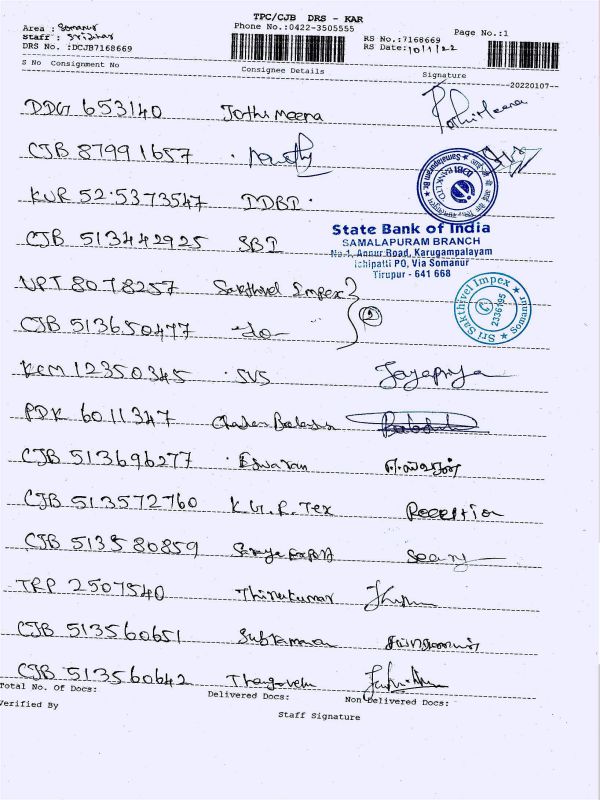 TPC/CJB DRS - KAR
Area : Somanur
Phone No.:0422-3505555
Staff : Sridhar
RS No.:7168669
Page No.:1
DRS No. :DCJB7168669
RS Date:10/1/22
S No Consignment No
Consignee Details
Signature
20220107
DDG 653140 Jothi Meena
CJB 87991657
KUR 525373547 IDBI
CJB 513442925 SBI
State Bank of India
SAMALAPURAM BRANCH
No.1, Annur Road, Karugampalayam
Ichipatti PO, Via Somanur
Tirupur - 641 668
UPT 8078257 Sakthivel Impex
Sri Sakthivel Impex
2336195
Somanur
CJB 513650477 -do- 2
KCM 12350345 SVS Jayapriya
PDK 6011347
CJB 513696277 Eswaran
CJB 513572760 K.G.R. Tex Reception
CJB 513580859
TRP 2507540 Thirukumar
CJB 513560651 Subramanan
CJB 513560642 Thangavelu
Total No. Of Docs:
Delivered Docs:
Non Delivered Docs:
Verified By
Staff Signature